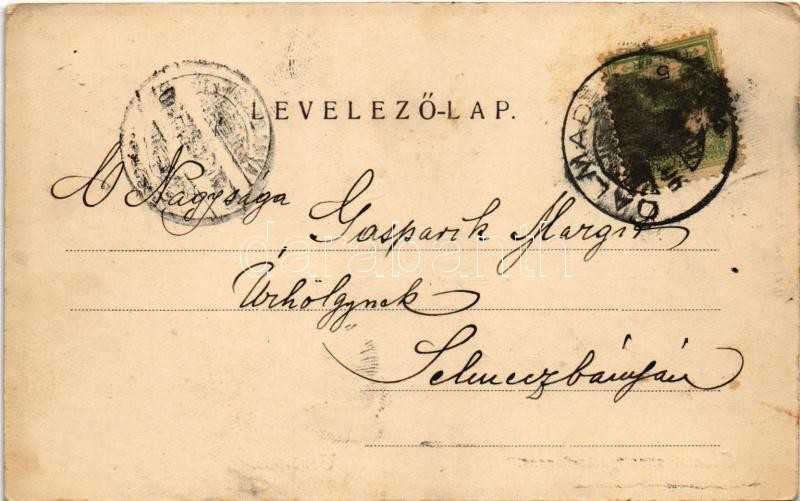 LEVELEZŐ-LAP.
DALMAD
Ő Nagysága
Gasparik Margit
Úrhölgynek
Selmeczbányán
darabanth